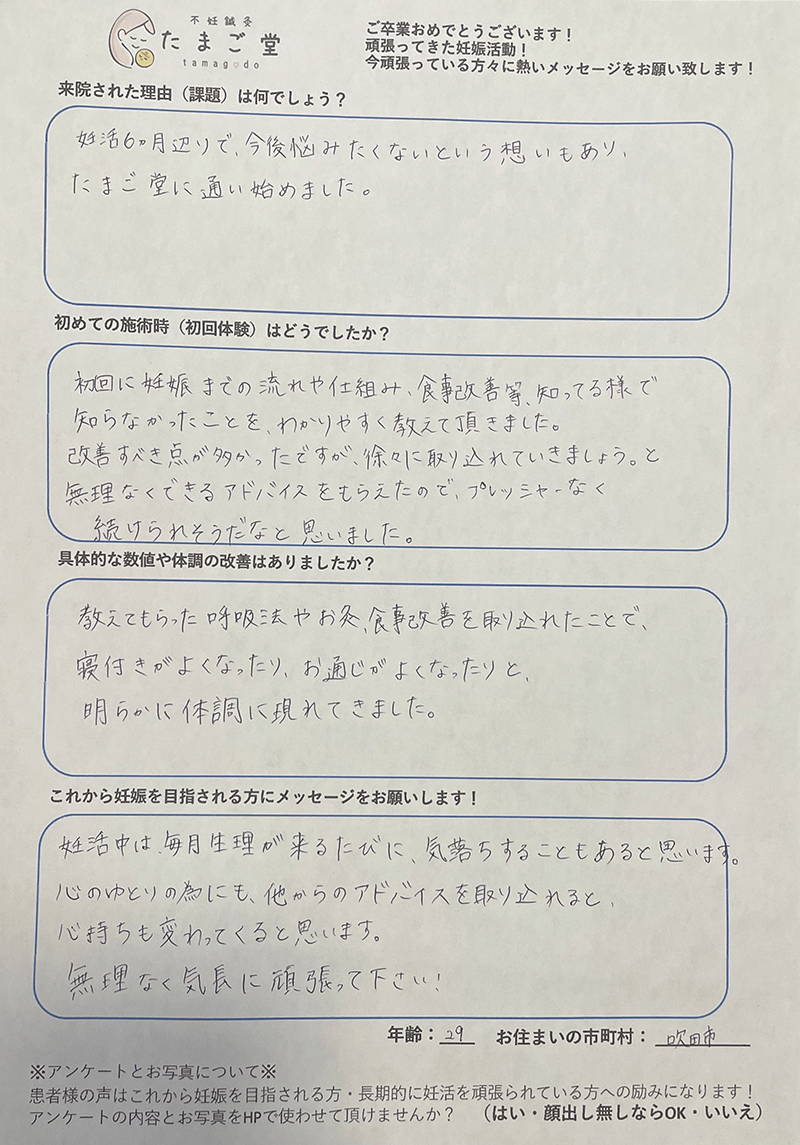 不妊鍼灸
たまご堂
tamagodo
ご卒業おめでとうございます！
頑張ってきた妊娠活動！
今頑張っている方々に熱いメッセージをお願い致します！
来院された理由（課題）は何でしょう？
妊活6ヶ月辺りで、今後悩みたくないという想いもあり、
たまご堂に通い始めました。
初めての施術時（初回体験）はどうでしたか？
初回に妊娠までの流れや仕組み、食事改善等、知ってる様で
知らなかったことを、わかりやすく教えて頂きました。
改善すべき点が多かったですが、徐々に取り込れていきましょう。と
無理なくできるアドバイスをもらえたので、プレッシャーなく
続けられそうだなと思いました。
具体的な数値や体調の改善はありましたか？
教えてもらった呼吸法やお灸、食事改善を取り込れたことで、
寝付きがよくなったり、お通じがよくなったりと、
明らかに体調に現れてきました。
これから妊娠を目指される方にメッセージをお願いします！
妊活中は、毎月生理が来るたびに、気落ちすることもあると思います。
心のゆとりの為にも、他からのアドバイスを取り込れると、
心持ちも変わってくると思います。
無理なく気長に頑張って下さい！
年齢：29 お住まいの市町村：吹田市
※アンケートとお写真について※
患者様の声はこれから妊娠を目指される方・長期的に妊活を頑張られている方への励みになります！
アンケートの内容とお写真をHPで使わせて頂けませんか？ （はい・顔出し無しならOK・いいえ）